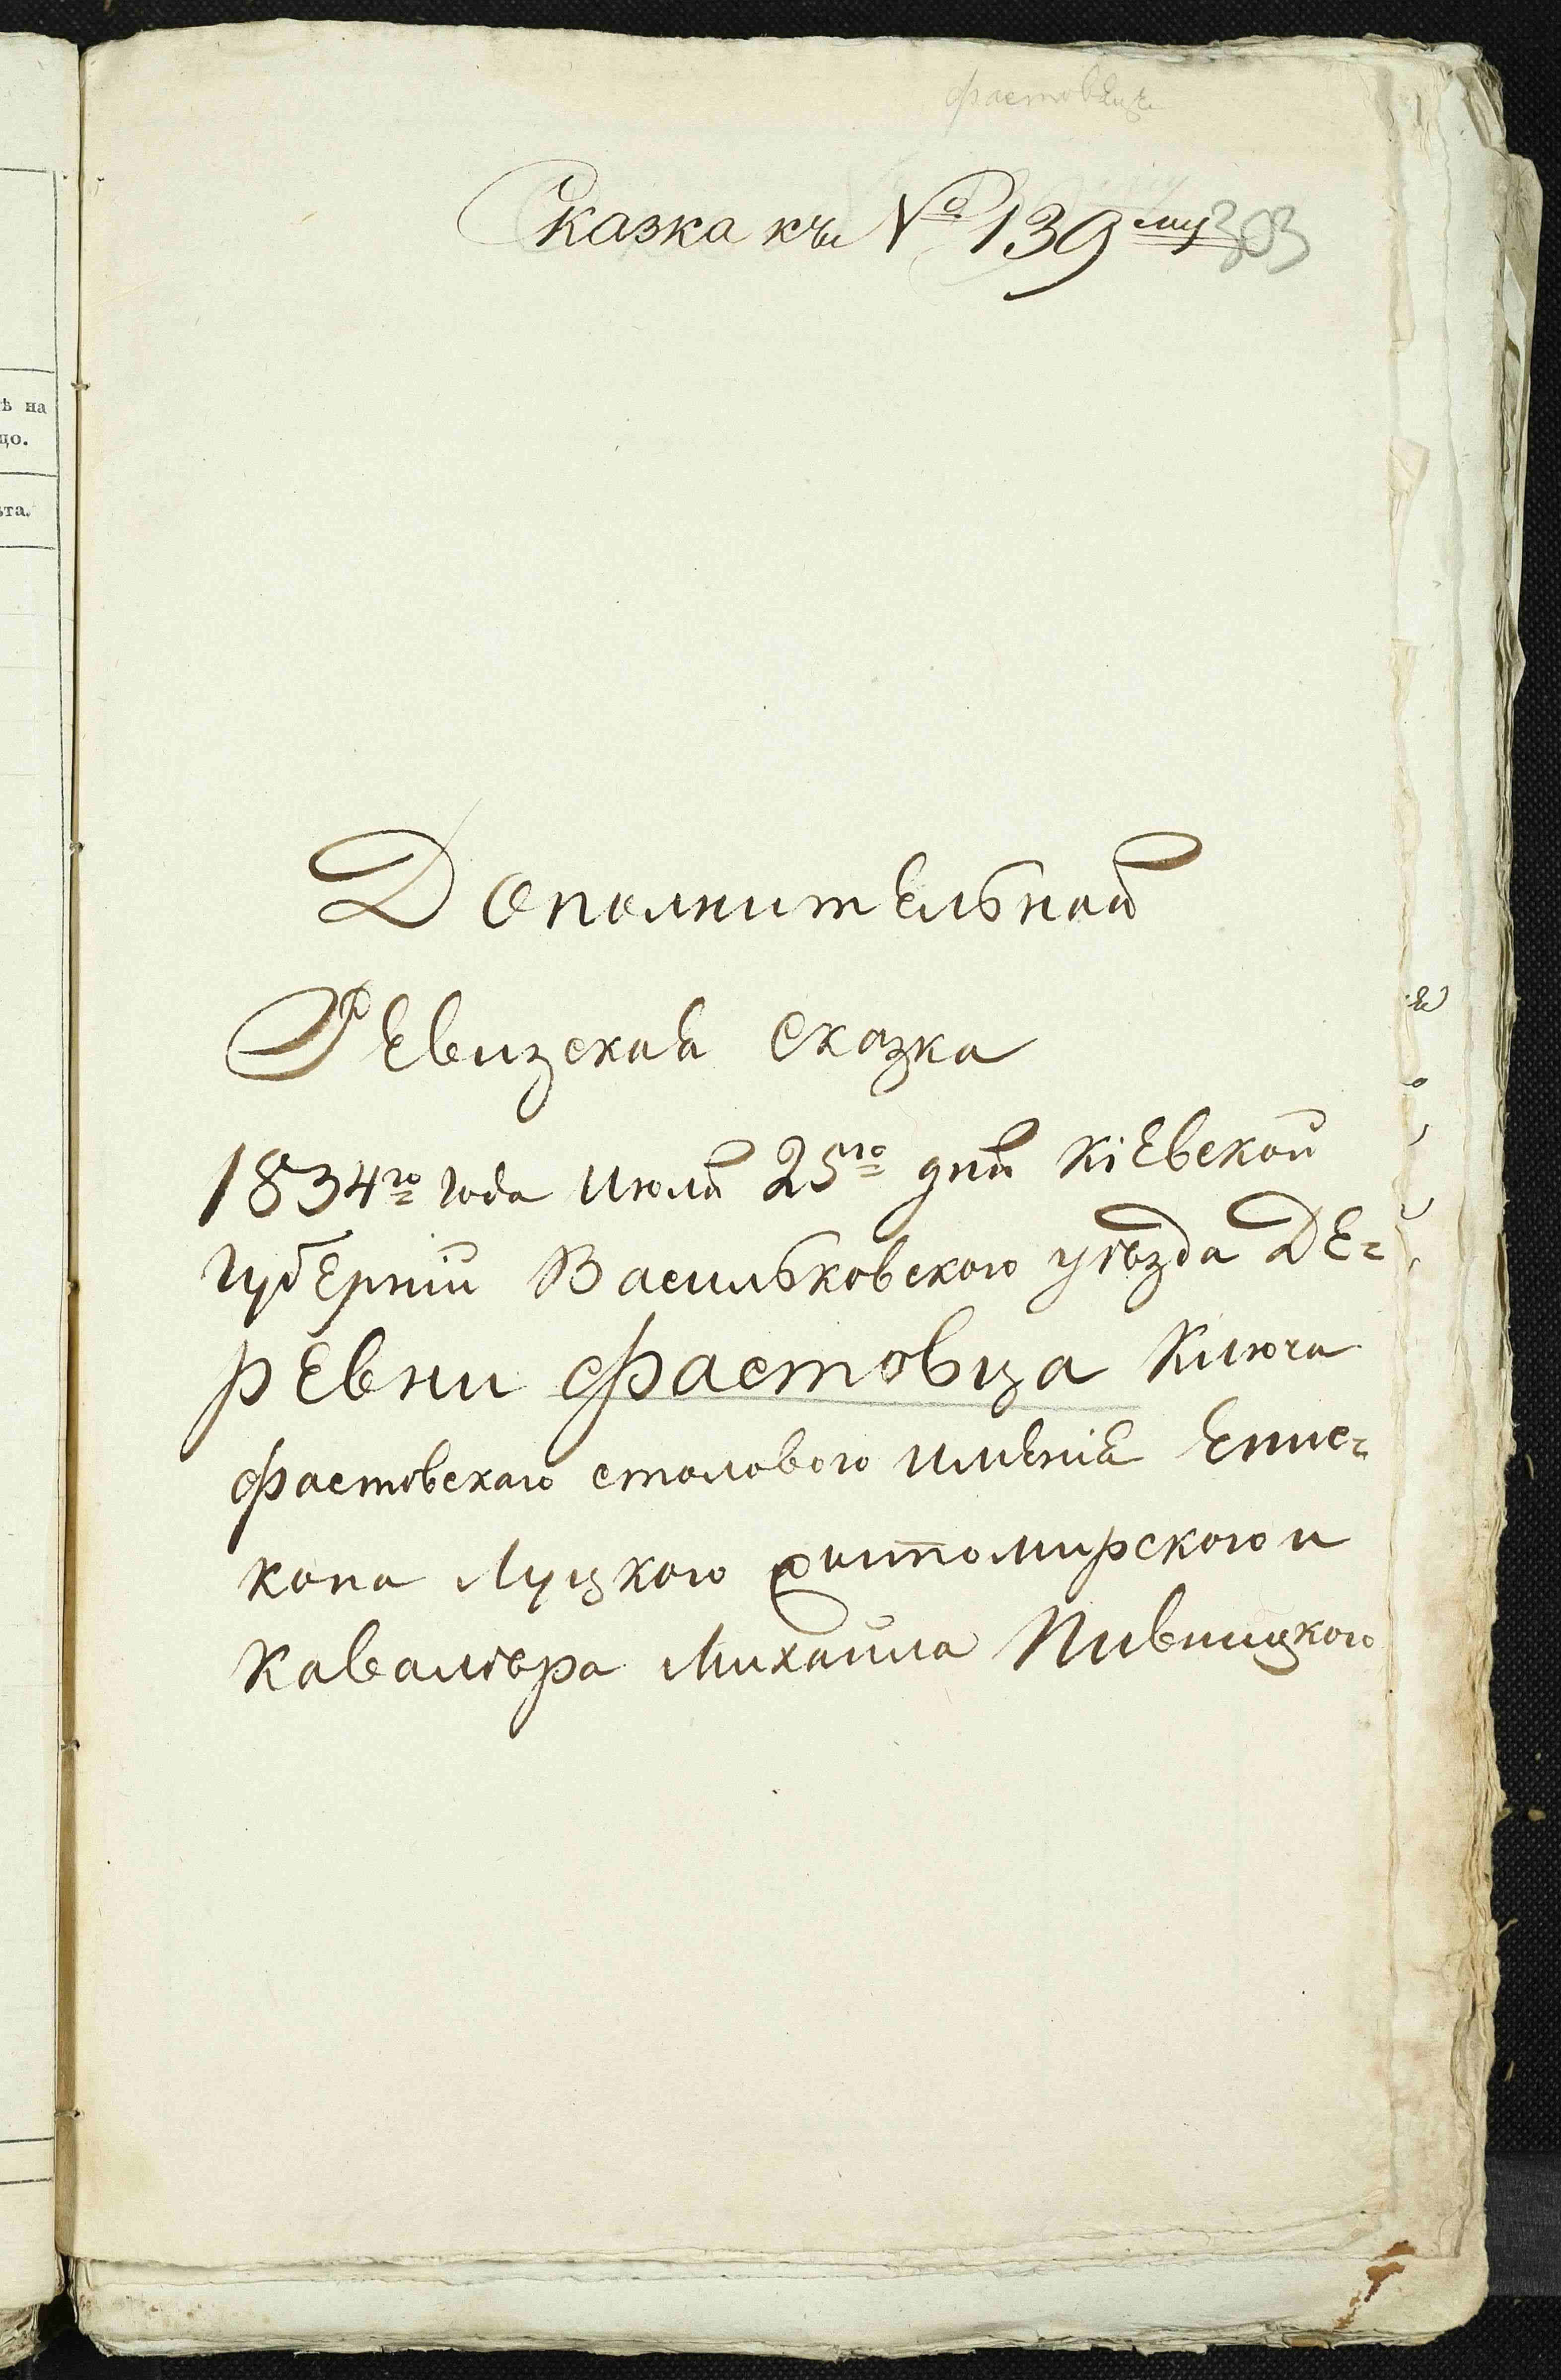 Фастовецъ
Сказка къ № 139му 303
Дополнительная
Ревизская сказка
1834го года Июля 25го дня Кіевской
Губерніи Васильковского уѣзда Де=
ревни Фастовца Ключа
Фастовскаго столового имѣнія Епис=
копа Луцкого Житомирского и
Кавалѣра Михаила Пивницкого
ѣ на
цо.
ѣта.